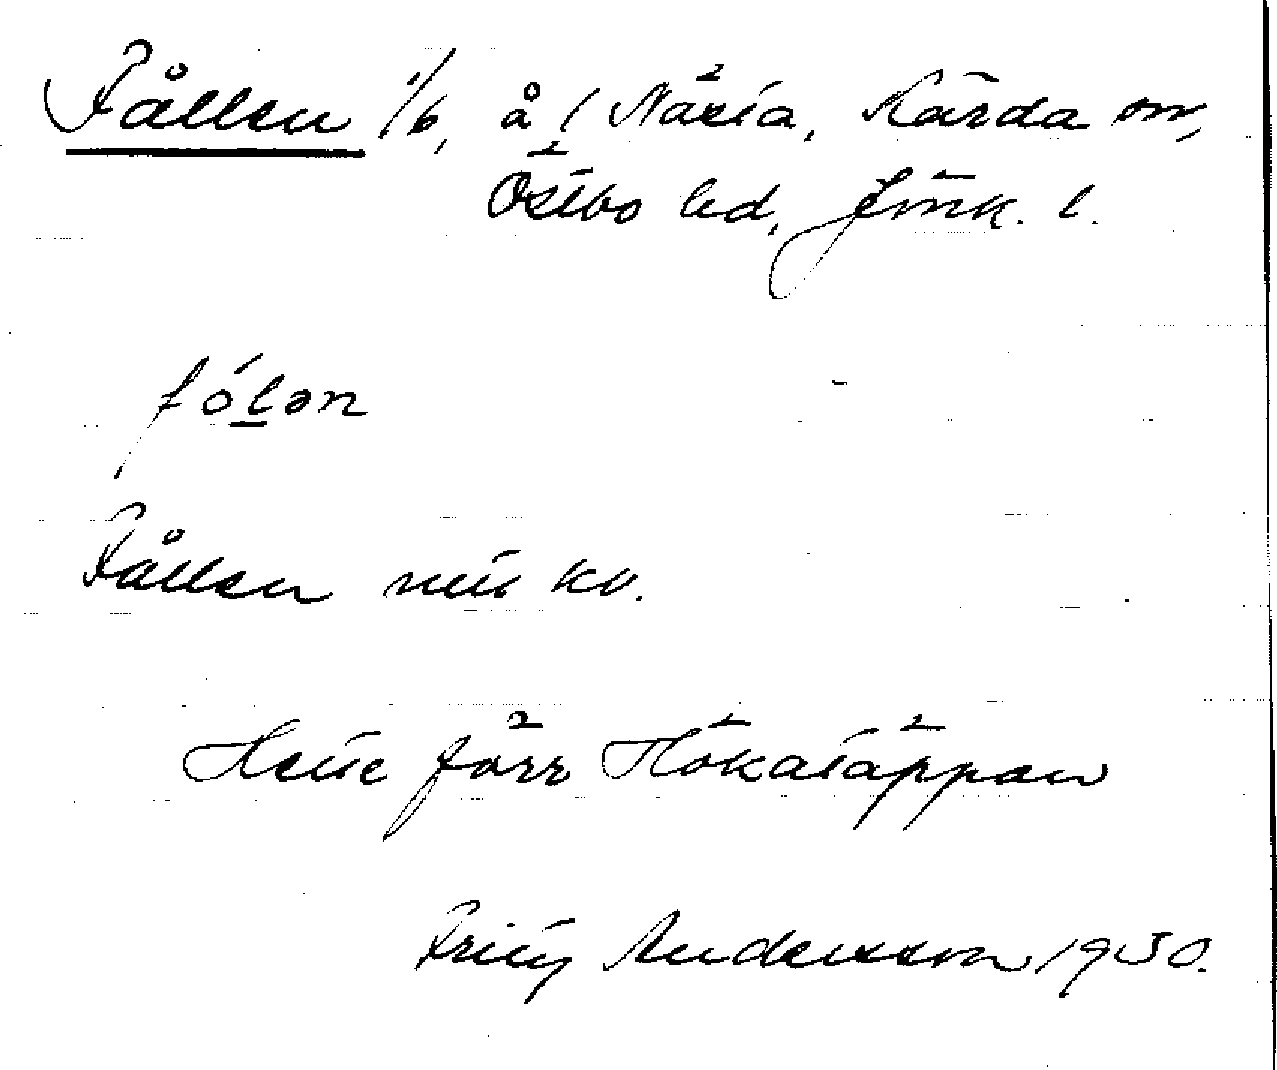 Fållen 1/6, å l Näsia, Kärda sn,
Östbo hd, Jönk. l.
fó̱lən
Fållen mitt kv.
Hette förr Hökatäppan
Fritz Andersson 1930.